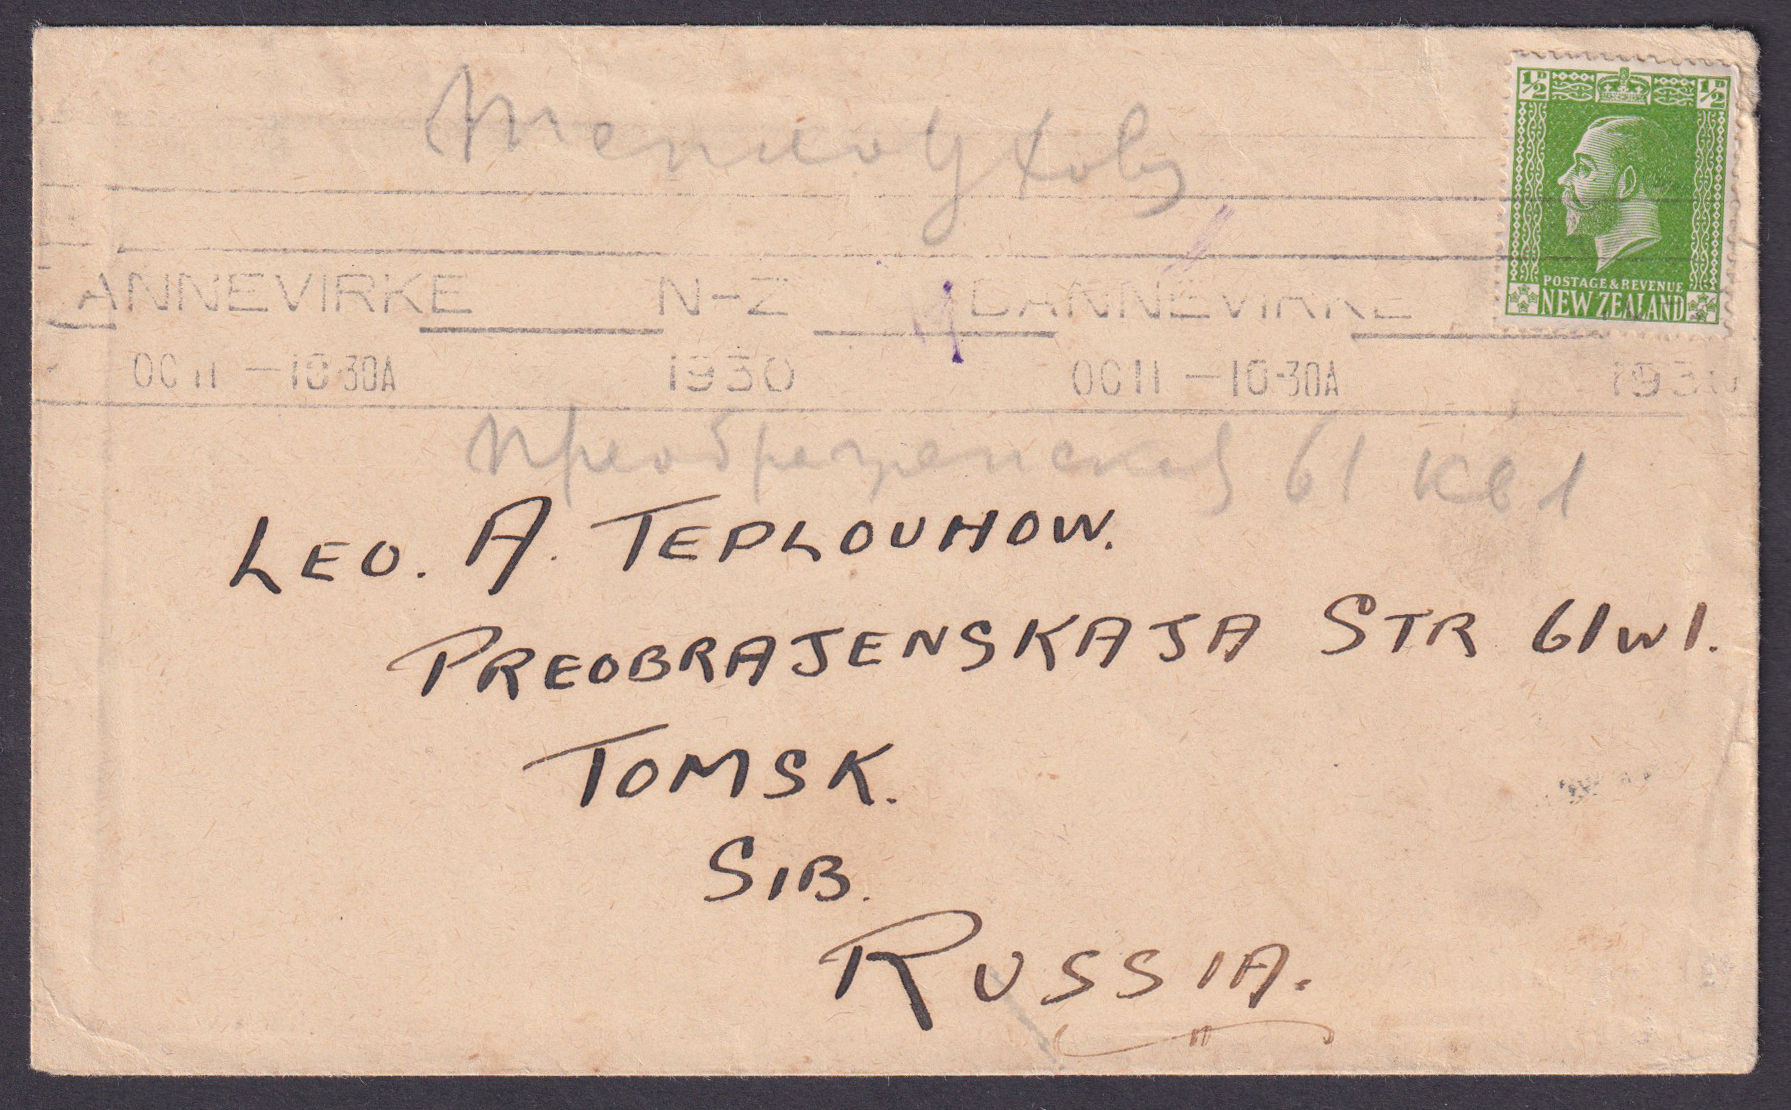 ½ᴰ ½ᴰ
Теплоухову
POSTAGE & REVENUE
NEW ZEALAND
ANNEVIRKE N-Z DANNEVIRKE
OC 11 -10-30A 1930 OC 11 -10-30A 1930
Преображенская 61 кв 1
LEO. A. TEPLOUHOW.
PREOBRAJENSKAJA STR 61 W 1.
TOMSK.
SIB.
RUSSIA.